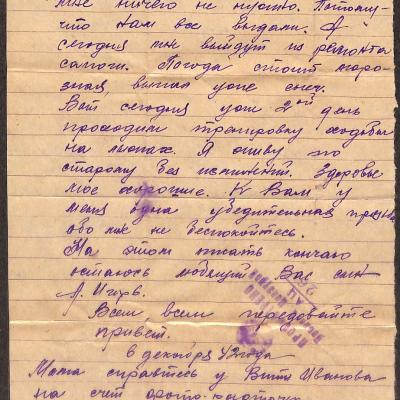 мне ничего не нужно. Потому-
что нам все выдали. А
сегодня мне выйдут из ремонта
сапоги. Погода стоит моро-
зная, выпал уже снег.
Вот сегодня уже 2ой день
проходим тренировку ходьбы
на лыжах. Я живу по
старому без изменений. Здоровье
мое хорошие. К Вам у
меня одна убедительная
обо мне не беспокойтесь.
На этом писать кончаю
остаюсь любящий Вас сын
А. Игорь.
Всем, всем передовайте
привет.
6 декабря 42 года
Мама справтесь у Вити Иванова
на счет фото-карточки